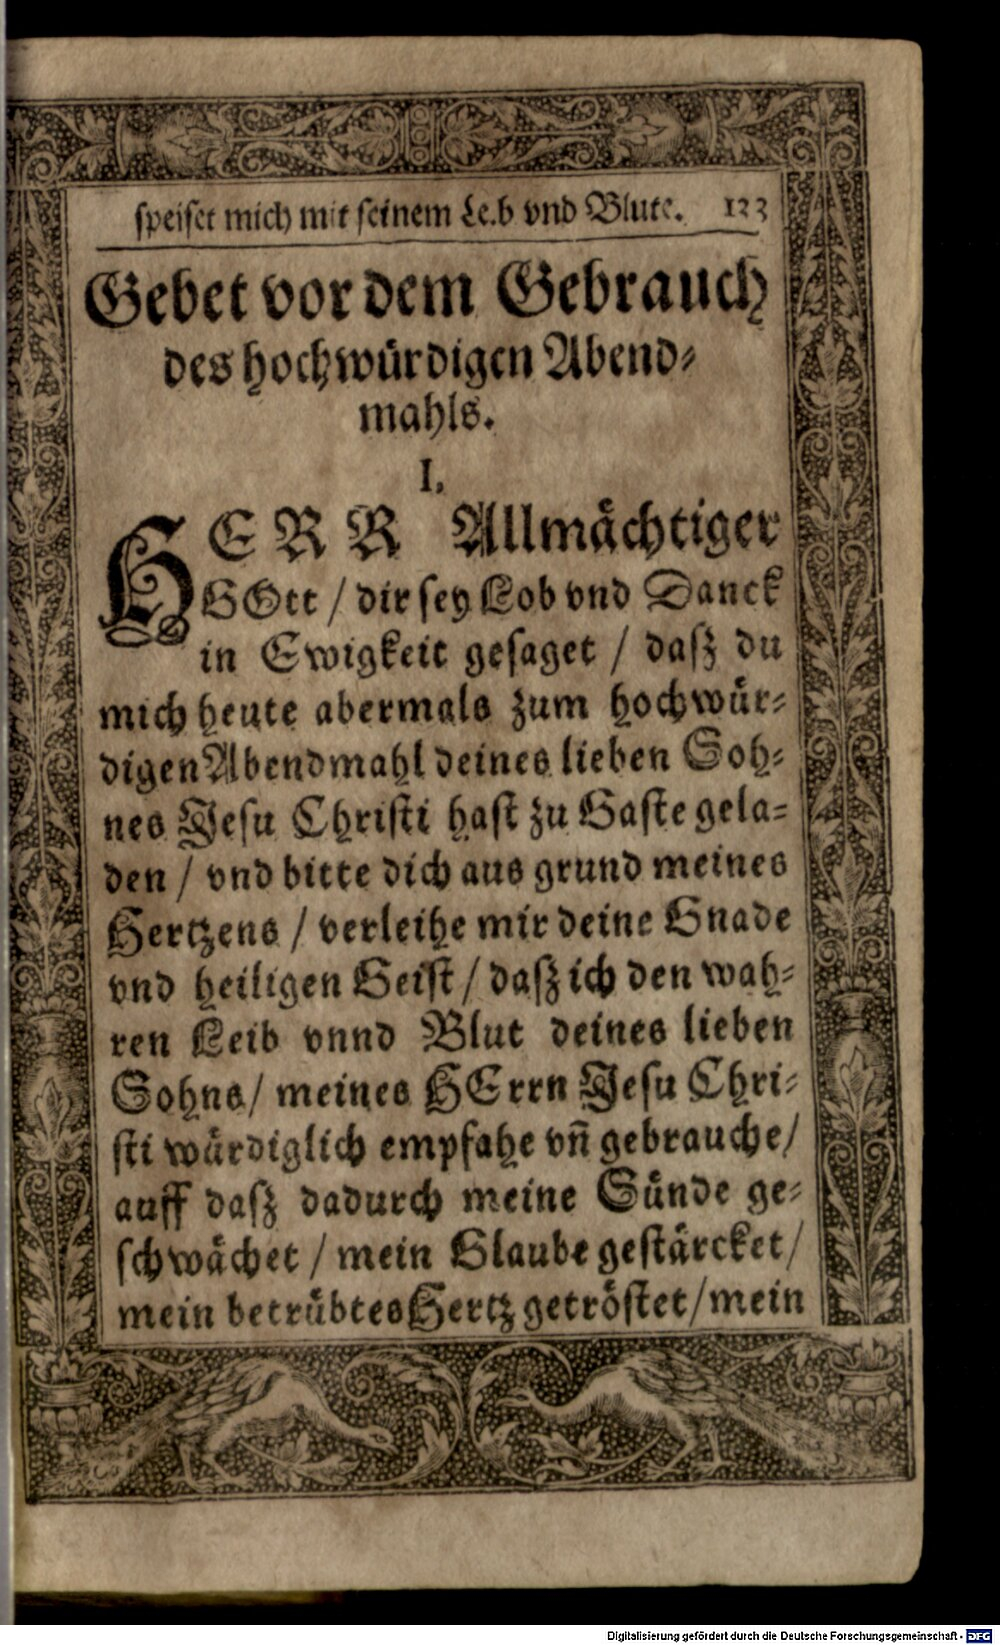 speiset mich mit seinem Le.b vnd Blute. 123
Gebet vor dem Gebrauch
des hochwürdigen Abend-
mahls.
I.
HERR Allmächtiger
GOtt / dir sey Lob vnd Danck
in Ewigkeit gesaget / dasz du
mich heute abermals zum hochwür-
digen Abendmahl deines lieben Soh-
nes Jesu Christi hast zu Gaste gela-
den / vnd bitte dich aus grund meines
Hertzens / verleihe mir deine Gnade
vnd heiligen Geist / dasz ich den wah-
ren Leib vnnd Blut deines lieben
Sohns / meines HErrn Jesu Chri-
sti würdiglich empfahe vñ gebrauche /
auff dasz dadurch meine Sünde ge-
schwächet / mein Glaube gestärcket /
mein betrübtes Hertz getröstet / mein
Digitalisierung gefördert durch die Deutsche Forschungsgemeinschaft - DFG